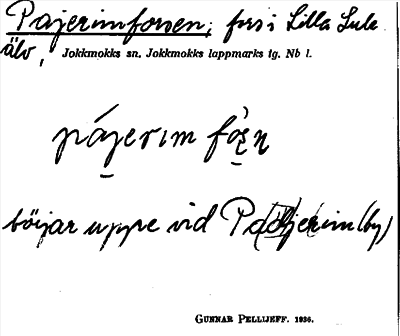 Pajerimforsen; fors i Lilla Lule
älv, Jokkmokks sn. Jokkmokks lappmarks tg. Nb l.
pájerım
börjar uppe vid
(by)
GUNNAR PELLIJEFF. 1936.